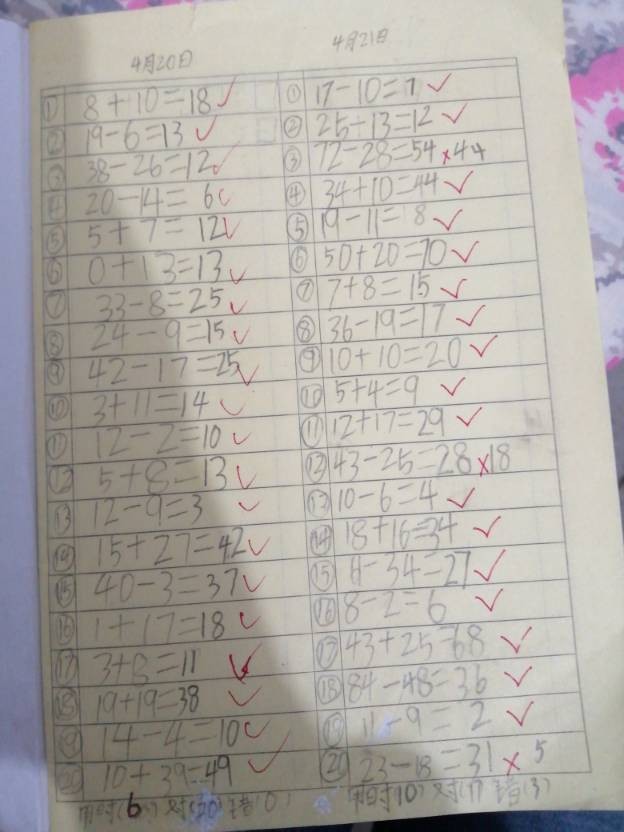 4月20日
① 8+10=18 ✓
② 19-6=13 ✓
③ 38-26=12 ✓
④ 20-14=6 ✓
⑤ 5+7=12 ✓
⑥ 0+13=13 ✓
⑦ 33-8=25 ✓
⑧ 24-9=15 ✓
⑨ 42-17=25 ✓
⑩ 3+11=14 ✓
⑪ 12-2=10 ✓
⑫ 5+8=13 ✓
⑬ 12-9=3 ✓
⑭ 15+27=42 ✓
⑮ 40-3=37 ✓
⑯ 1+17=18 ✓
⑰ 3+8=11 ✓
⑱ 19+19=38 ✓
⑲ 14-4=10 ✓
⑳ 10+39=49 ✓
用时(6) 对(20) 错(0)
4月21日
① 17-10=7 ✓
② 25-13=12 ✓
③ 72-28=54 × 44
④ 34+10=44 ✓
⑤ 19-11=8 ✓
⑥ 50+20=70 ✓
⑦ 7+8=15 ✓
⑧ 36-19=17 ✓
⑨ 10+10=20 ✓
⑩ 5+4=9 ✓
⑪ 12+17=29 ✓
⑫ 43-25=28 × 18
⑬ 10-6=4 ✓
⑭ 18+16=34 ✓
⑮ -34=27 ✓
⑯ 8-2=6 ✓
⑰ 43+25=68 ✓
⑱ 84-48=36 ✓
⑲ 11-9=2 ✓
⑳ 23-18=31 × 5
用时(10) 对(17) 错(3)